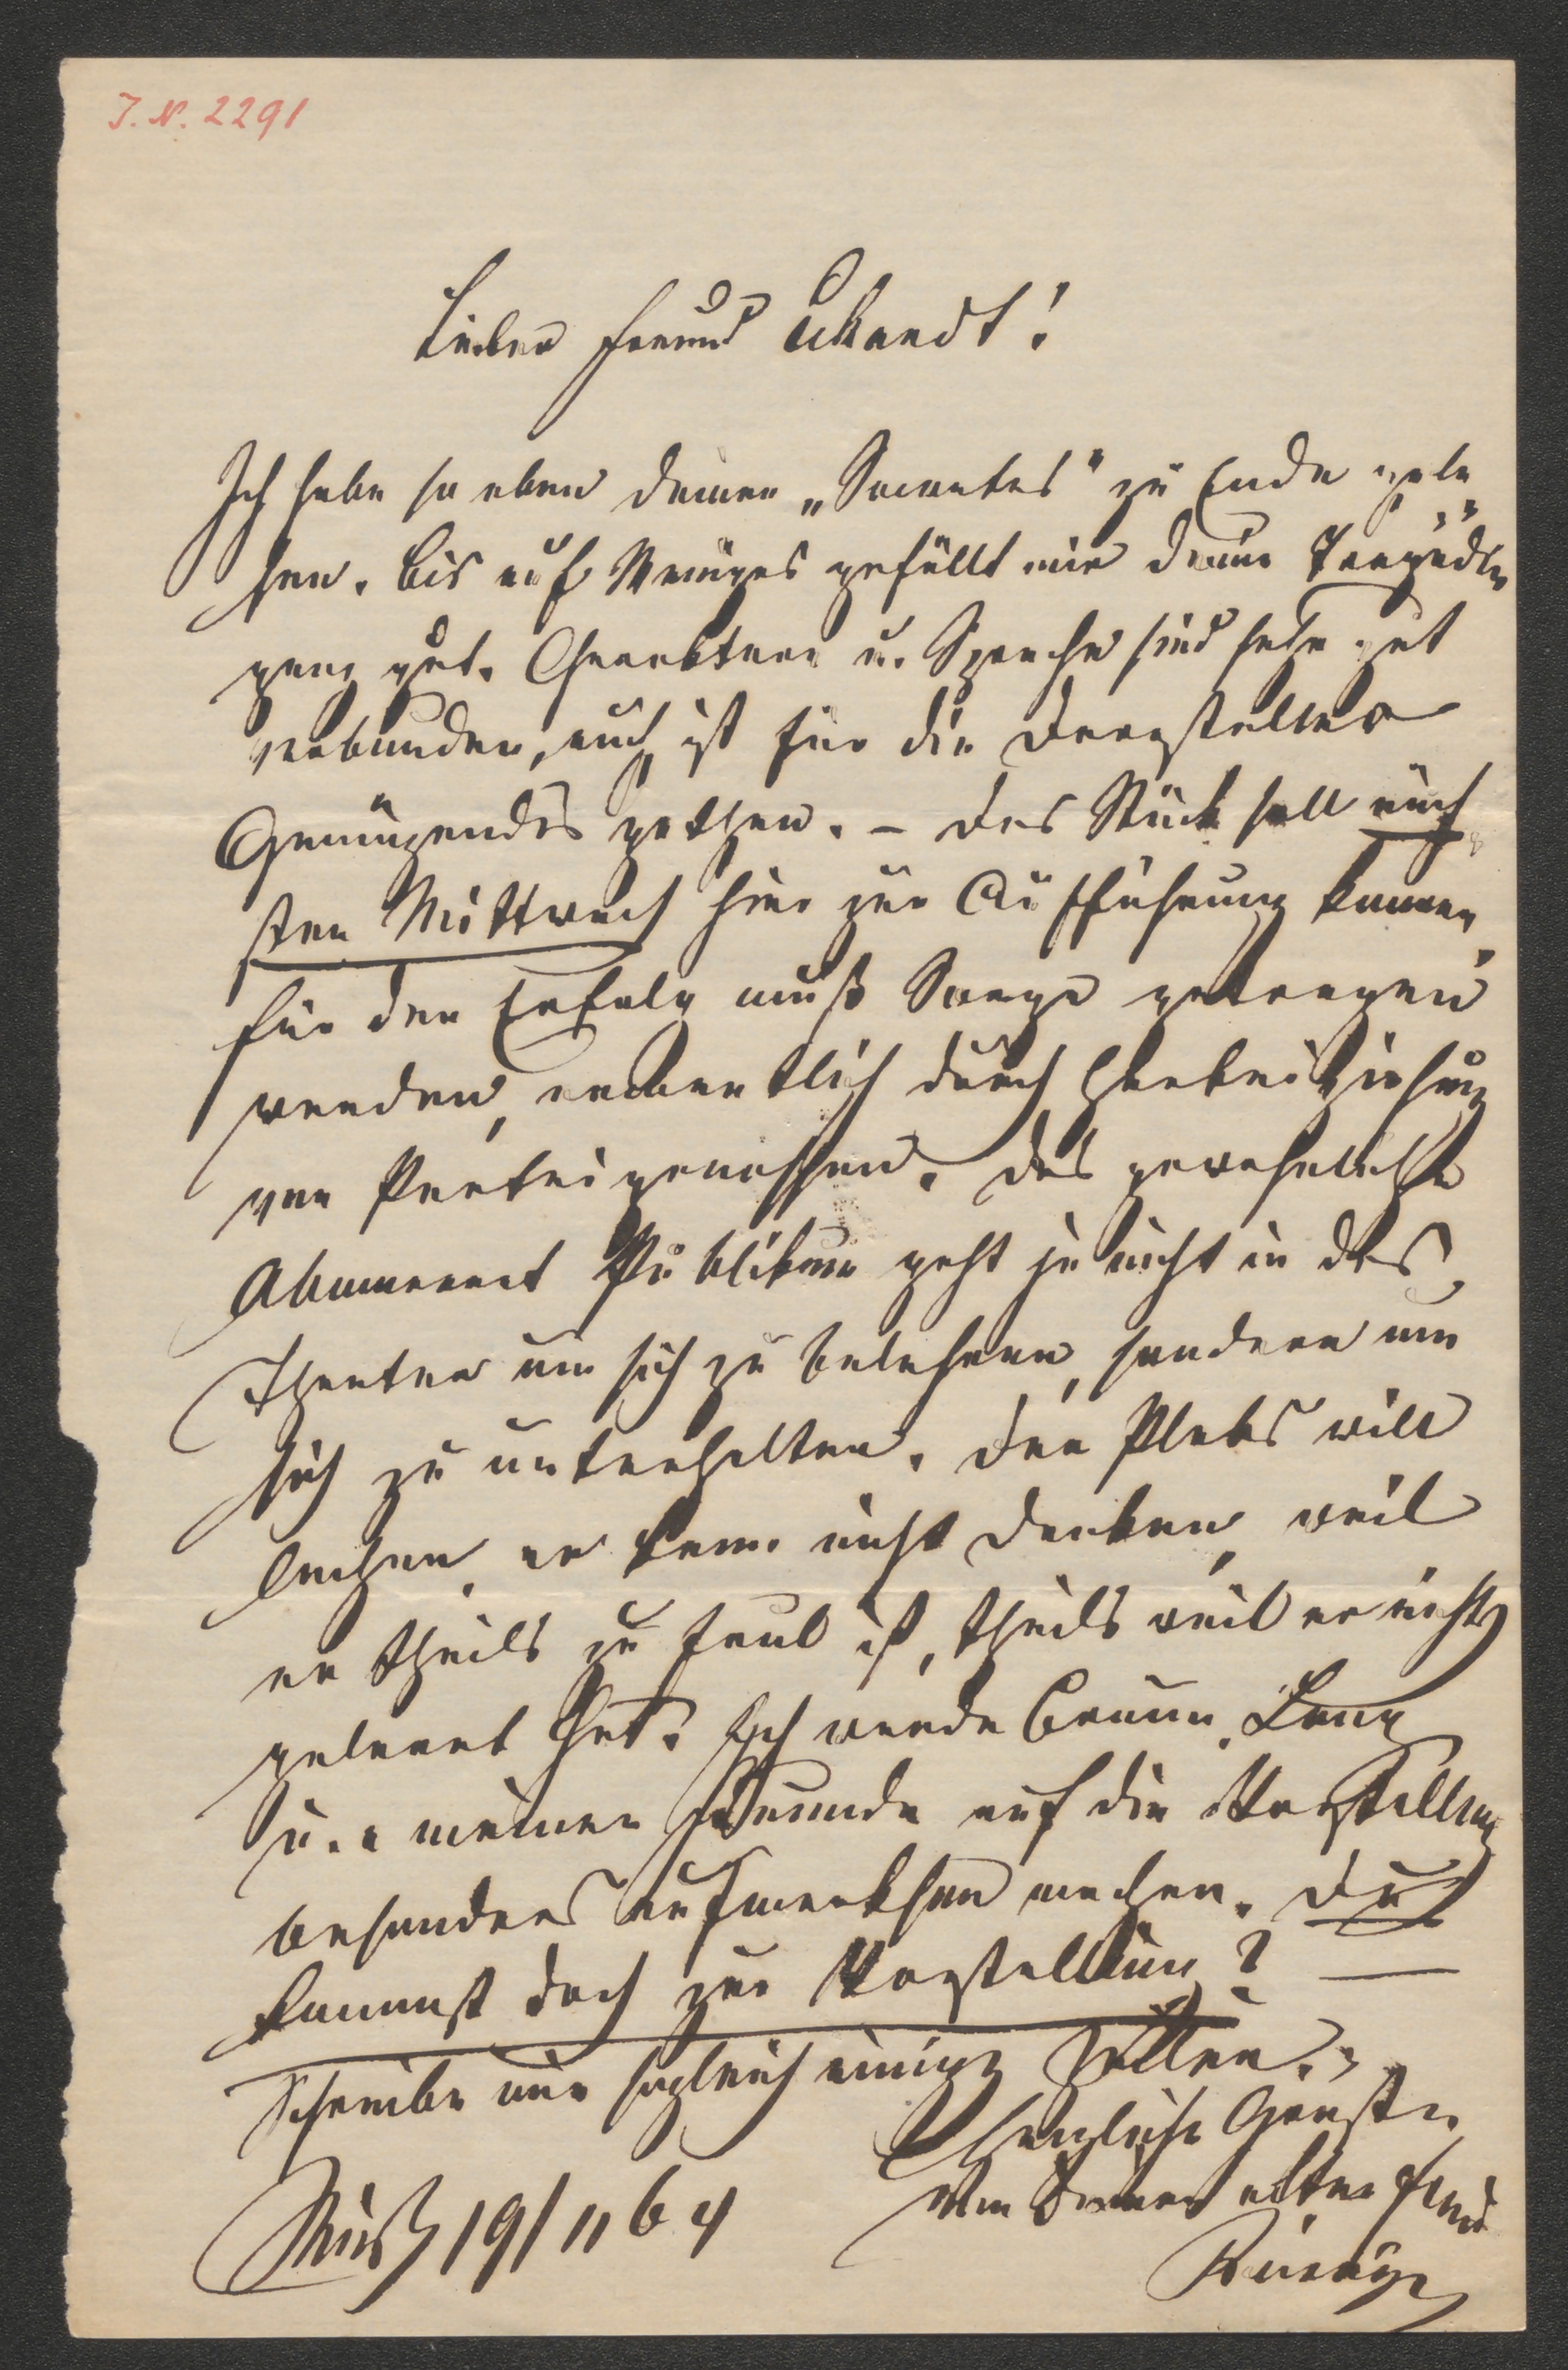 I. N. 2291
Lieber Freund Eckardt!
Ich habe so eben deinen „Socrates" zu Ende gele„
sen. Bis auf Weniges gefällt mir deine Tragödie
ganz gut. Charaktere u. Sprache sind sehr gut
verbunden, auch ist für die Darsteller
Genügendes gethan. – Das Stück soll näch„
sten Mittwoch hier zur Aufführung kommen,
für den Erfolg muß Sorge getragen
werden, namentlich durch Herbeiziehung
von Parteigenossen. Das gewöhnliche
Abonnent Publikum geht ja nicht in das
Theater um sich zu belehren, sondern um
sich zu unterhalten. Der Plebs will
lachen, er kann nicht denken, weil
er theils zu faul ist, theils weil er nichts
gelernt hat. Ich werde Braun, Lang
u. a meiner Freunde auf die Vorstellung
besonders aufmerksam machen. Du
kommst doch zur Vorstellung? —
Schreibe mir sogleich einige Zeilen.
Herzliche Grüße
von Deinem alten Freund
19/11 64